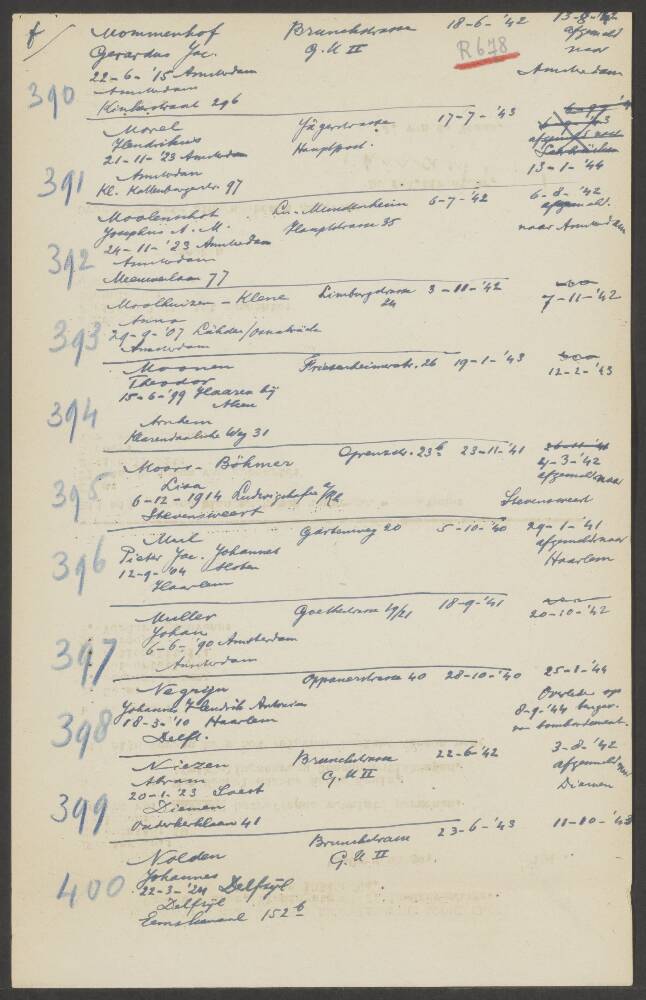 f
Mommenhof Brunckstrasse 18-6-'42 13-8-'42
Gerardus Jac. G.U II afgemeld
R678 naar
22-6-'15 Amsterdam Amsterdam
390 Amsterdam
Kinkerstraat 296
Morel Jägerstrasse 17-7-'43
Hendrikus Hauptpost.
21-11-'23 Amsterdam 13-1-'44
391 Amsterdam
Kl. Kattenburgerstr. 97
Moolenschot Lu.-Mundenheim 6-7-'42 6-8-'42
Josephus A. M. Hauptstrasse 35 afgemeld.
24-11-'23 Amsterdam naar Amsterdam
392 Amsterdam
Meeuwenlaan 77
Moolhuizen - Klene Limburgstrasse 3-11-'42
Anna 24 7-11-'42
393 29-9-'07
Amsterdam
Moonen Friesenheimerstr. 26 19-1-'43
Theodor 12-2-'43
15-6-'99 Haaren bij
394 Aken
Arnhem
Klarendaalsche Weg 31
Moors - Böhmer Grenzstr. 23 b 23-11-'41
Lisa 4-3-'42
395 6-12-1914 Ludwigshafen a/Rh afgemeld naar
Stevensweert Stevensweert
Mul Gartenweg 20 5-10-'40 29-1-'41
Pieter Jac. Johannes afgemeld naar
396 12-9-'04 Sloten Haarlem
Haarlem
Muller Goethestrasse 19/21 18-9-'41
Johan 20-10-'42
397 6-6-'90 Amsterdam
Amsterdam
Negrijn Oppauerstrasse 40 28-10-'40 25-8-'44
Johannes Hendrik Antonius Overleden op
398 18-3-'10 Haarlem 8-9-'44 tengev.
Delft. van bombardement.
Niezen Brunckstrasse 22-6-'42 3-8-'42
Abram G.U II afgemeld naar
399 20-1-'23 Soest Diemen
Diemen
Ouderkerklaan 41
Nolden Brunckstrasse 23-6-'43 11-10-'43
Johannes G.U II
400 22-3-'24 Delfzijl
Delfzijl
Eemskanaal 152 b